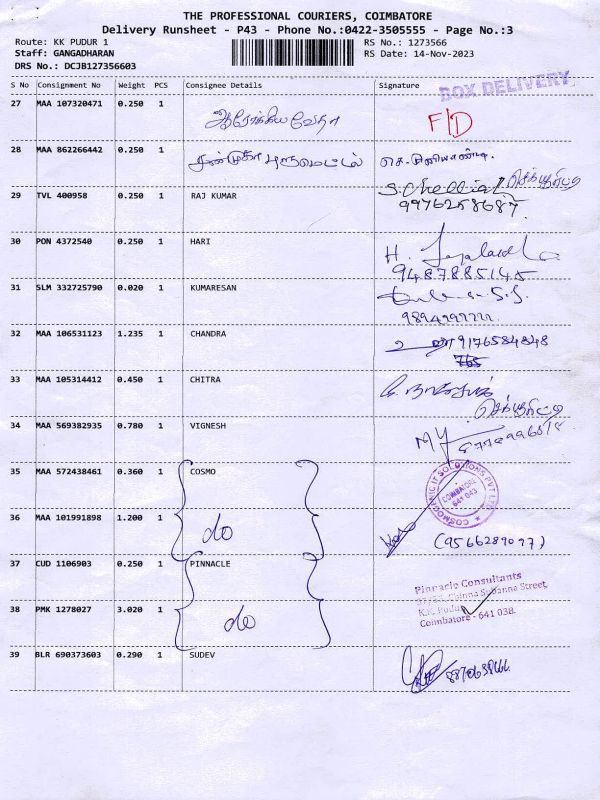 THE PROFESSIONAL COURIERS, COIMBATORE
Delivery Runsheet - P43 - Phone No.:0422-3505555 - Page No.:3
Route: KK PUDUR 1 RS No.: 1273566
Staff: GANGADHARAN RS Date: 14-Nov-2023
DRS No.: DCJB127356603
S No Consignment No Weight PCS Consignee Details Signature
BOX DELIVERY
27 MAA 107320471 0.250 1 F/D
28 MAA 862266442 0.250 1
29 TVL 400958 0.250 1 RAJ KUMAR S. Chelliah
9976258687
30 PON 4372540 0.250 1 HARI H.
9487885145
31 SLM 332725790 0.020 1 KUMARESAN
32 MAA 106531123 1.235 1 CHANDRA 9176584848
765
33 MAA 105314412 0.450 1 CHITRA
34 MAA 569382935 0.780 1 VIGNESH
35 MAA 572438461 0.360 1 COSMO
COSMOGENIC IT SOLUTIONS PVT LTD
COIMBATORE
641 043
36 MAA 101991898 1.200 1 do
(9566289077)
37 CUD 1106903 0.250 1 PINNACLE
Pinnacle Consultants
Chinna Subanna Street,
K.K. Pudur
Coimbatore - 641 038.
38 PMK 1278027 3.020 1 do
39 BLR 690373603 0.290 1 SUDEV